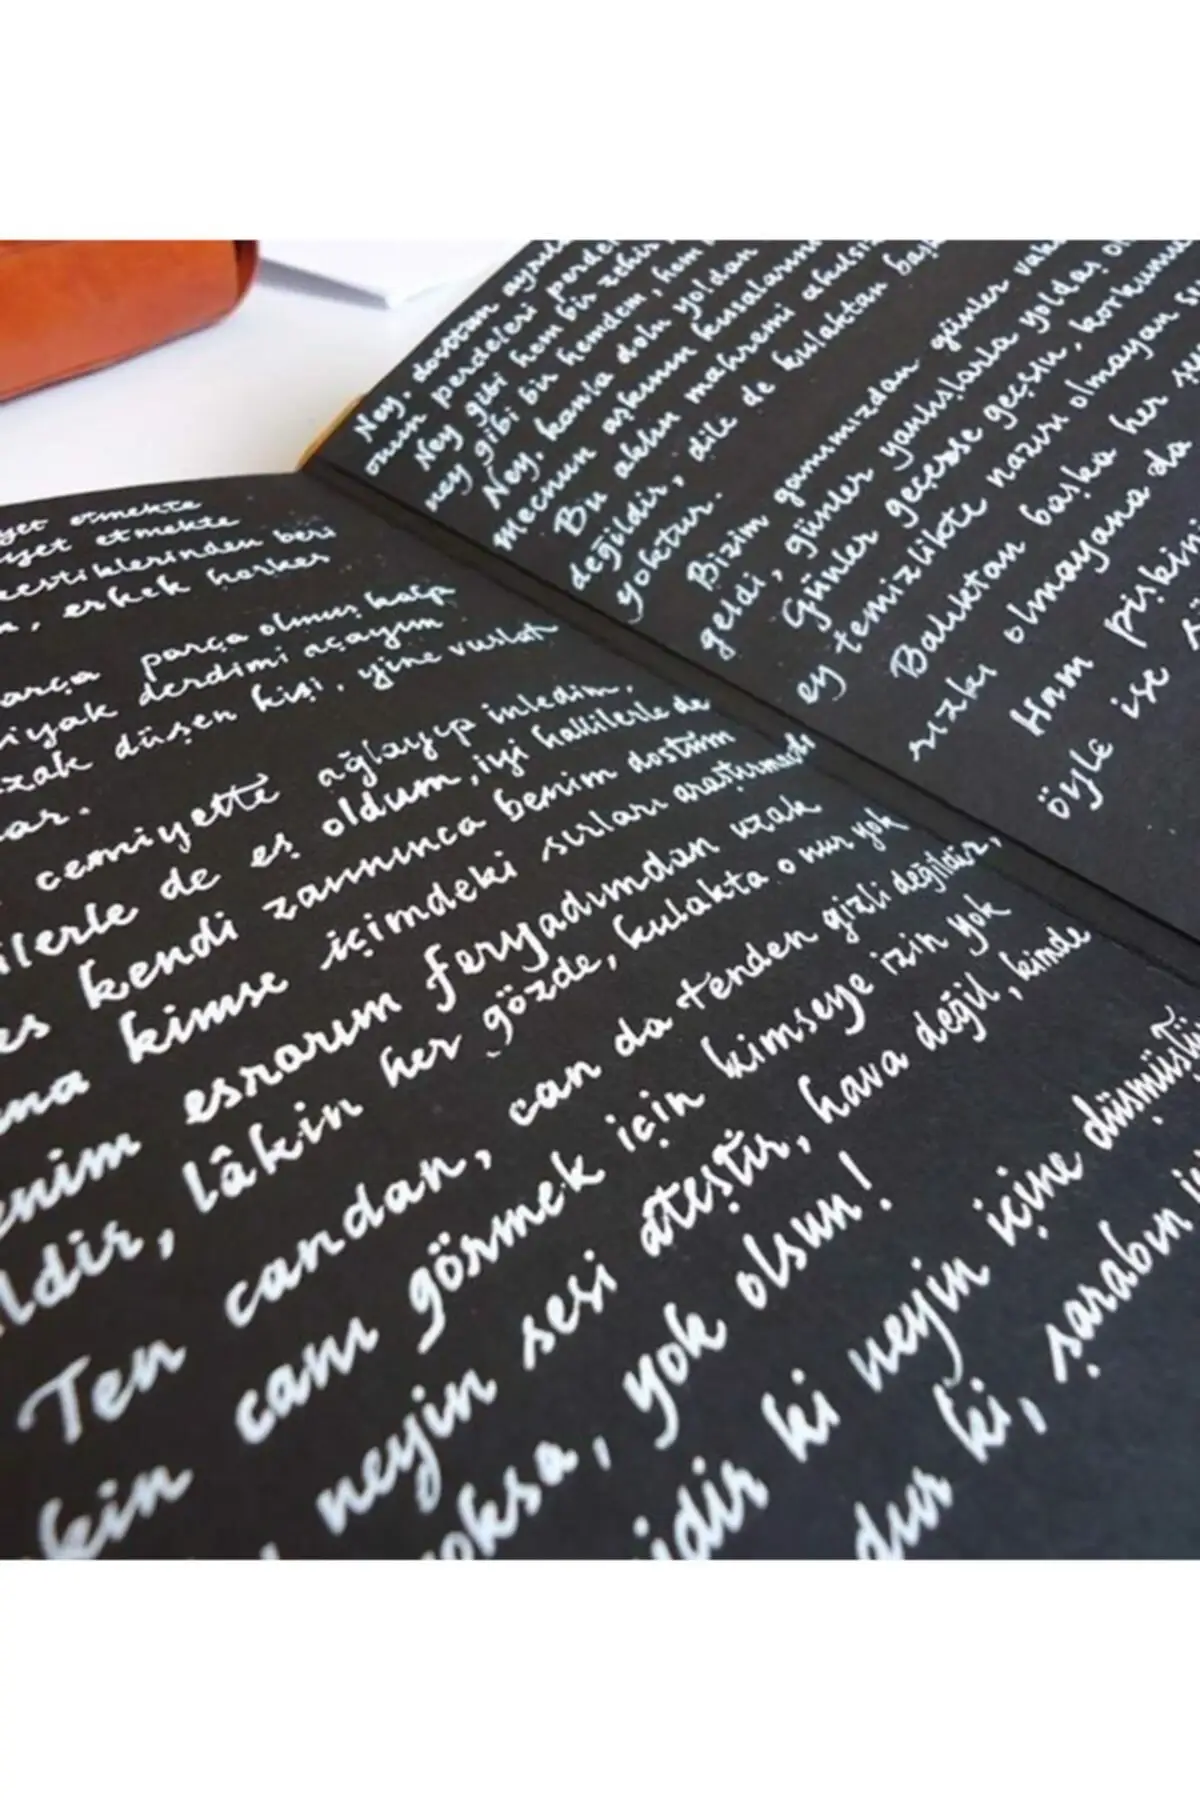 yet etmekte
yet etmekte
kestiklerinden beri
erkek herkes
parça olmuş kalp
derdimi açayım
düşen kişi, yine vuslat
cemiyette ağlayıp inledim,
de eş oldum, iyi hallilerle de
kendi zannınca benim dostum
kimse içimdeki sırları araştırmadı
esrarım feryadımdan uzak
ldir, lâkin her gözde, kulakta o nur yok
Ten candan, can da tenden gizli değildir,
canı görmek için kimseye izin yok
neyin sesi ateştir, hava değil, kimde
yoksa, yok olsun!
ki neyin içine düşmüştü
ki, şarabın
Ney, dosttan
onun perdeleri
Ney gibi hem bir zehir
ney gibi bir hemdem, hem
Ney, kanla dolu yoldan
mecnun aşkının kıssalarını
Bu aklın mahremi akılsız
değildir, dile de kulaktan
yoktur.
Bizim gamımızdan günler
geldi, günler yanlışlarla yoldaş
Günler geçerse geçsin, korkumuz
ey temizlikte naziri olmayan
Balıktan başka her
rızkı olmayana da
Ham pişkin
öyle ise